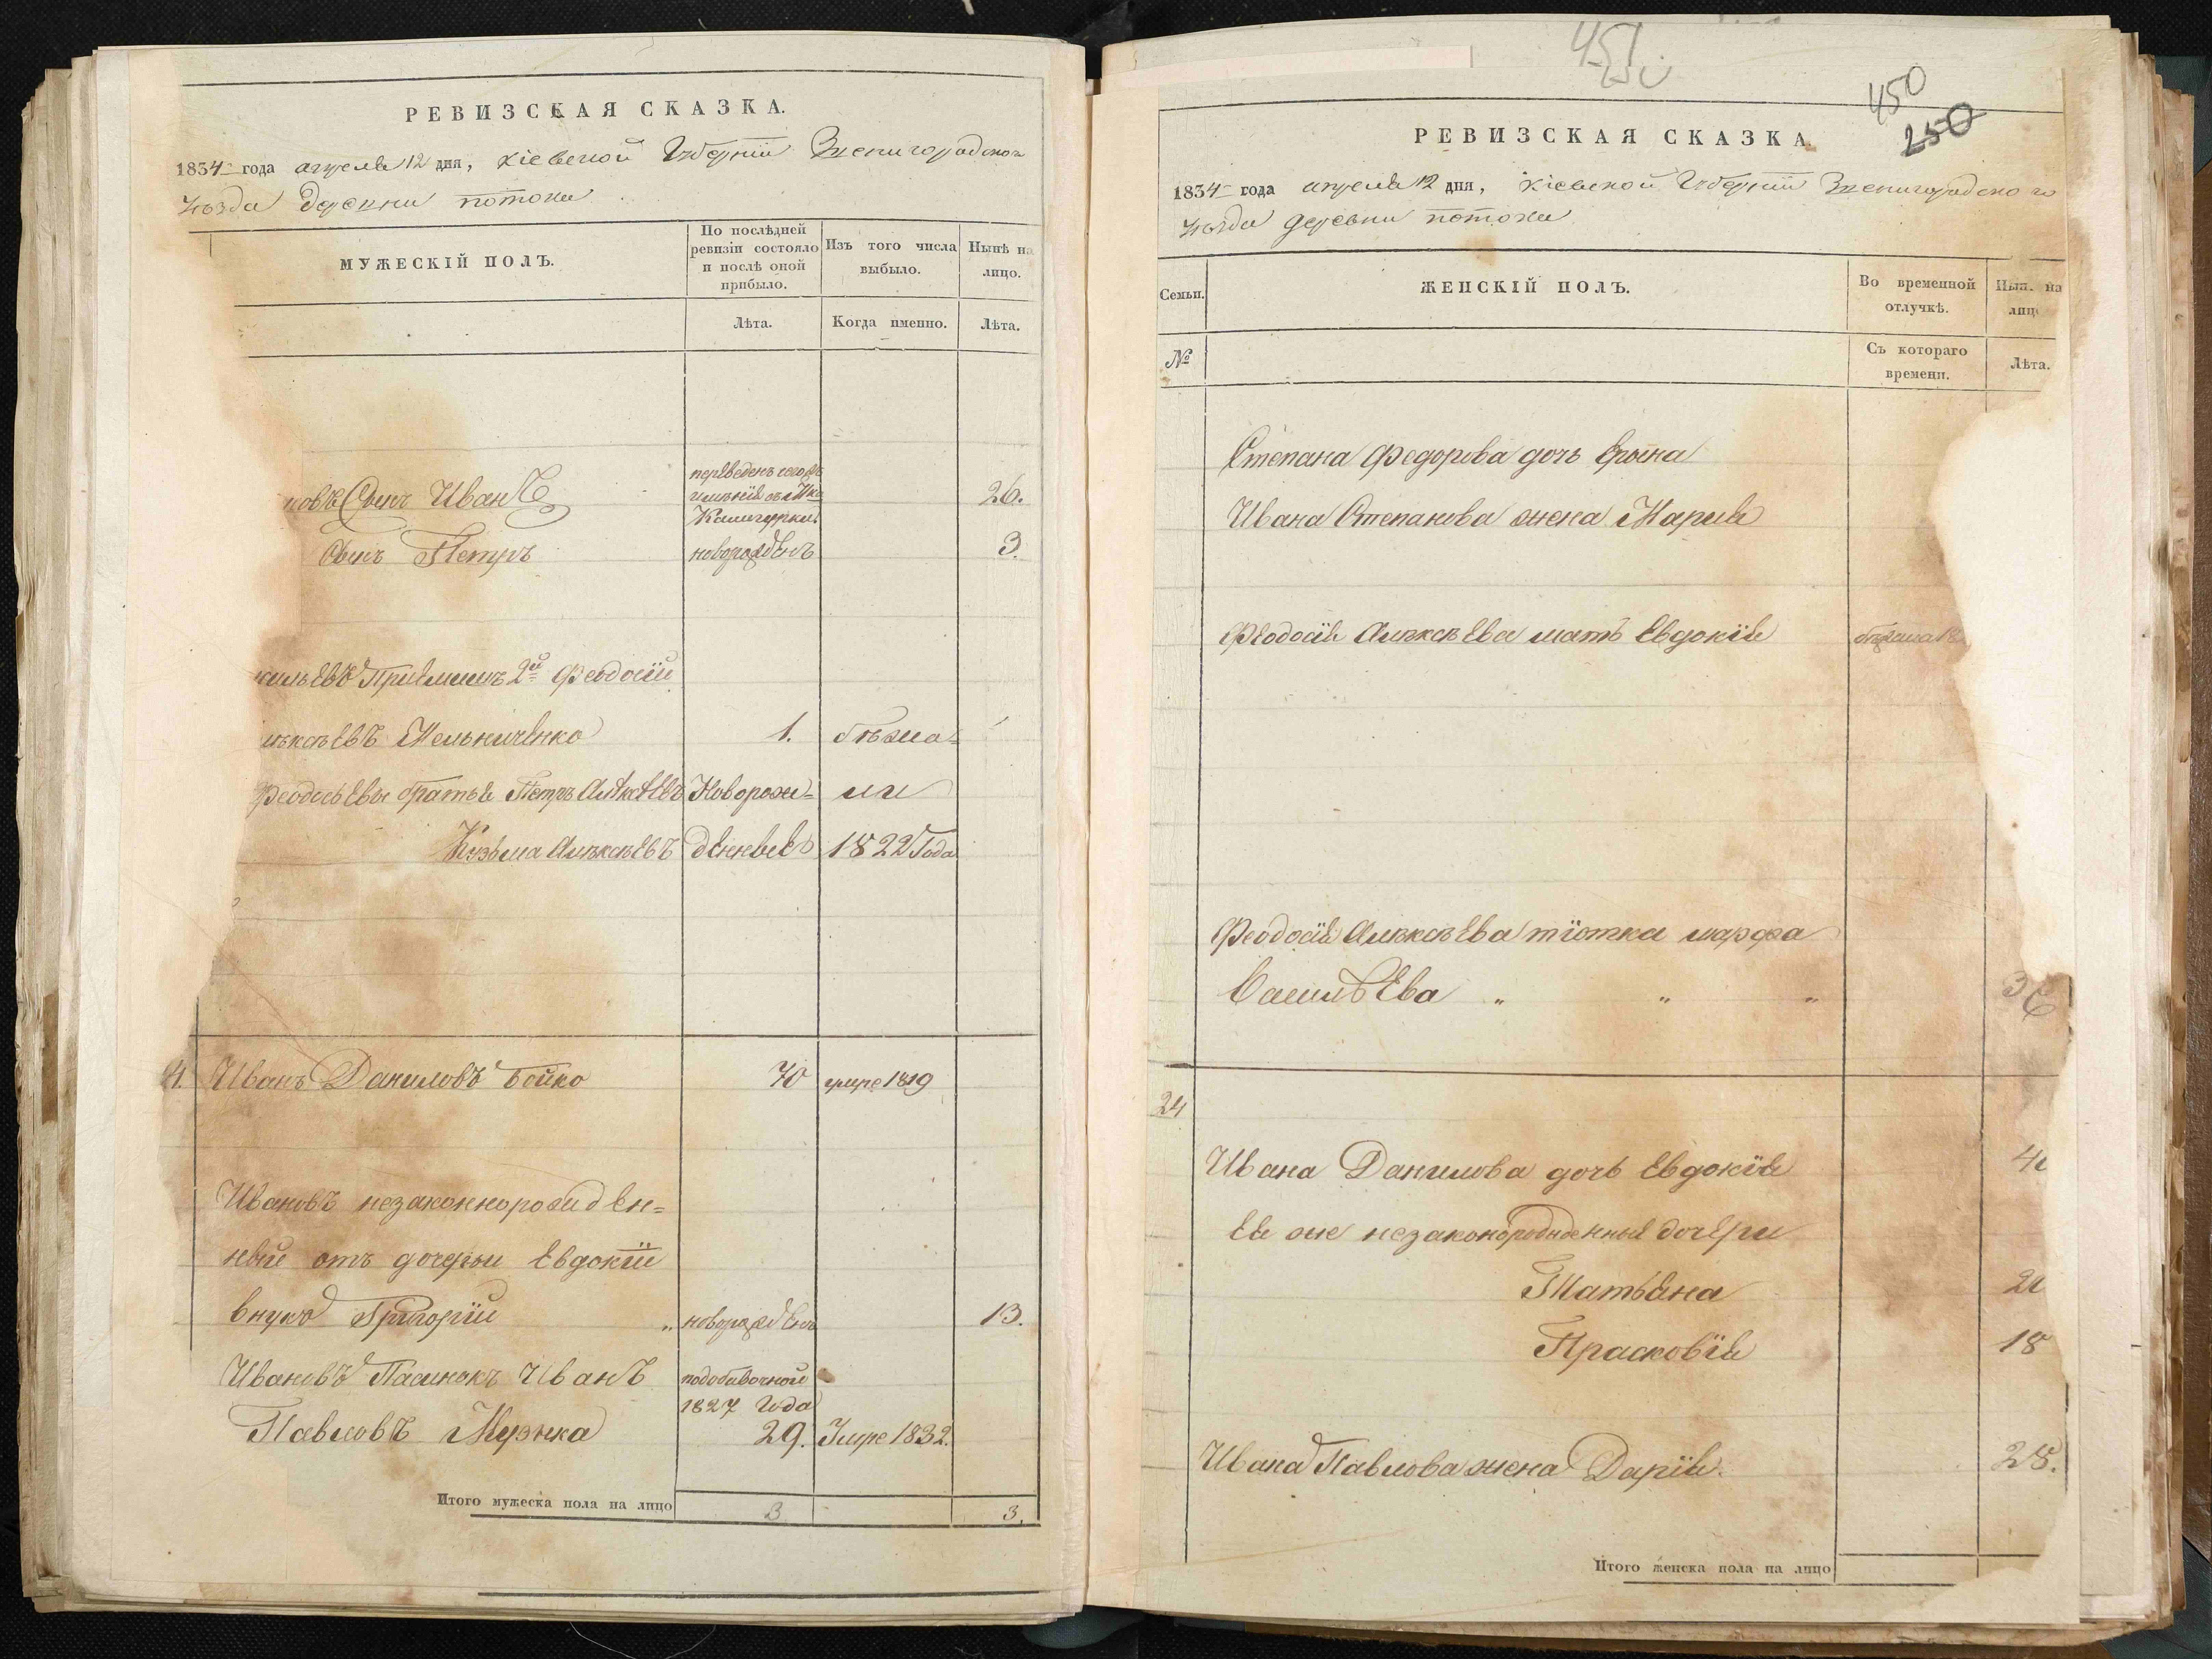 РЕВИЗСКАЯ СКАЗКА.
1834 года апреля 12 дня, Кіевской Губерніи Звенигородского
Уѣзда Деревни Потоки
МУЖЕСКІЙ ПОЛЪ.
По послѣдней ревизіи состояло и послѣ оной прибыло.
Изъ того числа выбыло.
Нынѣ на лицо.
Лѣта.
Когда именно.
Лѣта.
новъ Сынъ Иванъ
переведенъ
26.
Сынъ Петръ новорожденъ 3.
сильевъ Приемышъ 2й Феодосій
лѣксѣевъ Мельниченко 1. бѣжа=
Феодосьевы братья Петръ Алѣксѣевъ Новорож= ли
Кузьма Алѣксѣевъ денные 1822 Года
4. Иванъ Даниловъ Бойко 70 умре 1819
Ивановъ незаконнорожден=
ный отъ дочери Евдокіи
внукъ Григорій „ новорожденъ 13.
Ивановъ Пасинокъ Иванъ подобавочной
1827 Года
Павловъ Музыка 29. Умре 1832.
Итого мужеска пола на лицо 3 3.
451
450
250
РЕВИЗСКАЯ СКАЗКА.
1834 года апреля 12 дня, Кіевской Губерніи Звенигородского
Уѣзда деревни Потоки
Семьи.
ЖЕНСКІЙ ПОЛЪ.
Во временной отлучкѣ.
Нын. на лиц
№
Съ котораго времени.
Лѣта.
Степана Федорова дочь Ерына
Ивана Степанова жена Марія
Феодосія Алѣксѣева мать Евдокія
Феодосія Алѣксѣева тіотка Марфа
Васильева „ „ „ 36
24
Ивана Данилова дочь Евдокія 4
Ея же незаконорожденные дочери
Татьяна 2
Прасковія 18
Ивана Павлова жена Дарія. 28.
Итого женска пола на лицо